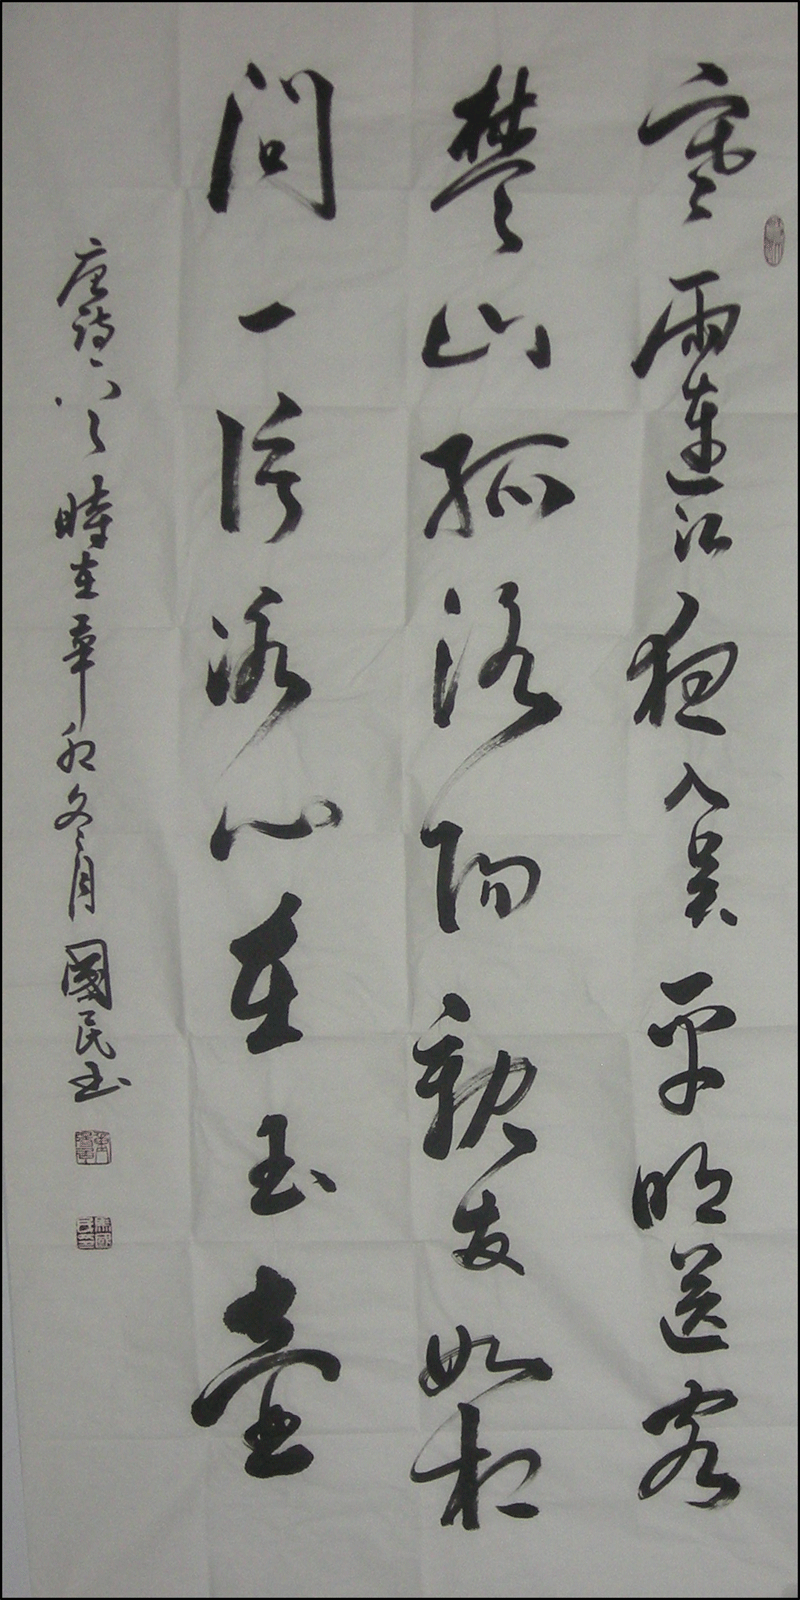 寒雨連江夜入吴平明送客
楚山孤洛陽親友如相
問一片冰心在玉壺
唐詩 時在辛卯冬月國民书